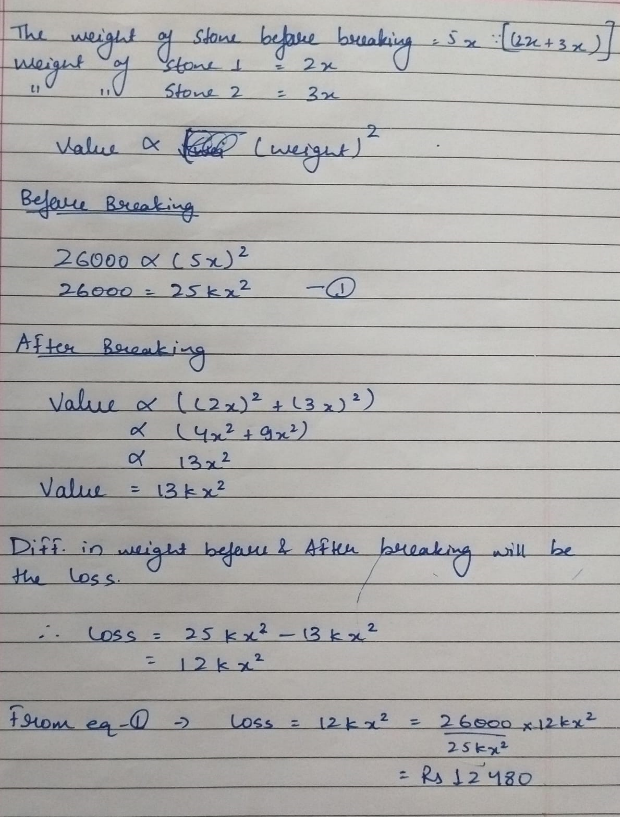 The weight of stone before breaking = 5x ∵ [(2x + 3x)]
weight of stone 1 = 2x
" " stone 2 = 3x
Value ∝ (weight)²
Before Breaking
26000 ∝ (5x)²
26000 = 25kx² - ①
After Breaking
Value ∝ ((2x)² + (3x)²)
∝ (4x² + 9x²)
∝ 13x²
Value = 13kx²
Diff. in weight before & After breaking will be
the loss.
∴ Loss = 25kx² - 13kx²
= 12kx²
From eq-① → Loss = 12kx² = 26000/25kx² × 12kx²
= Rs 12480